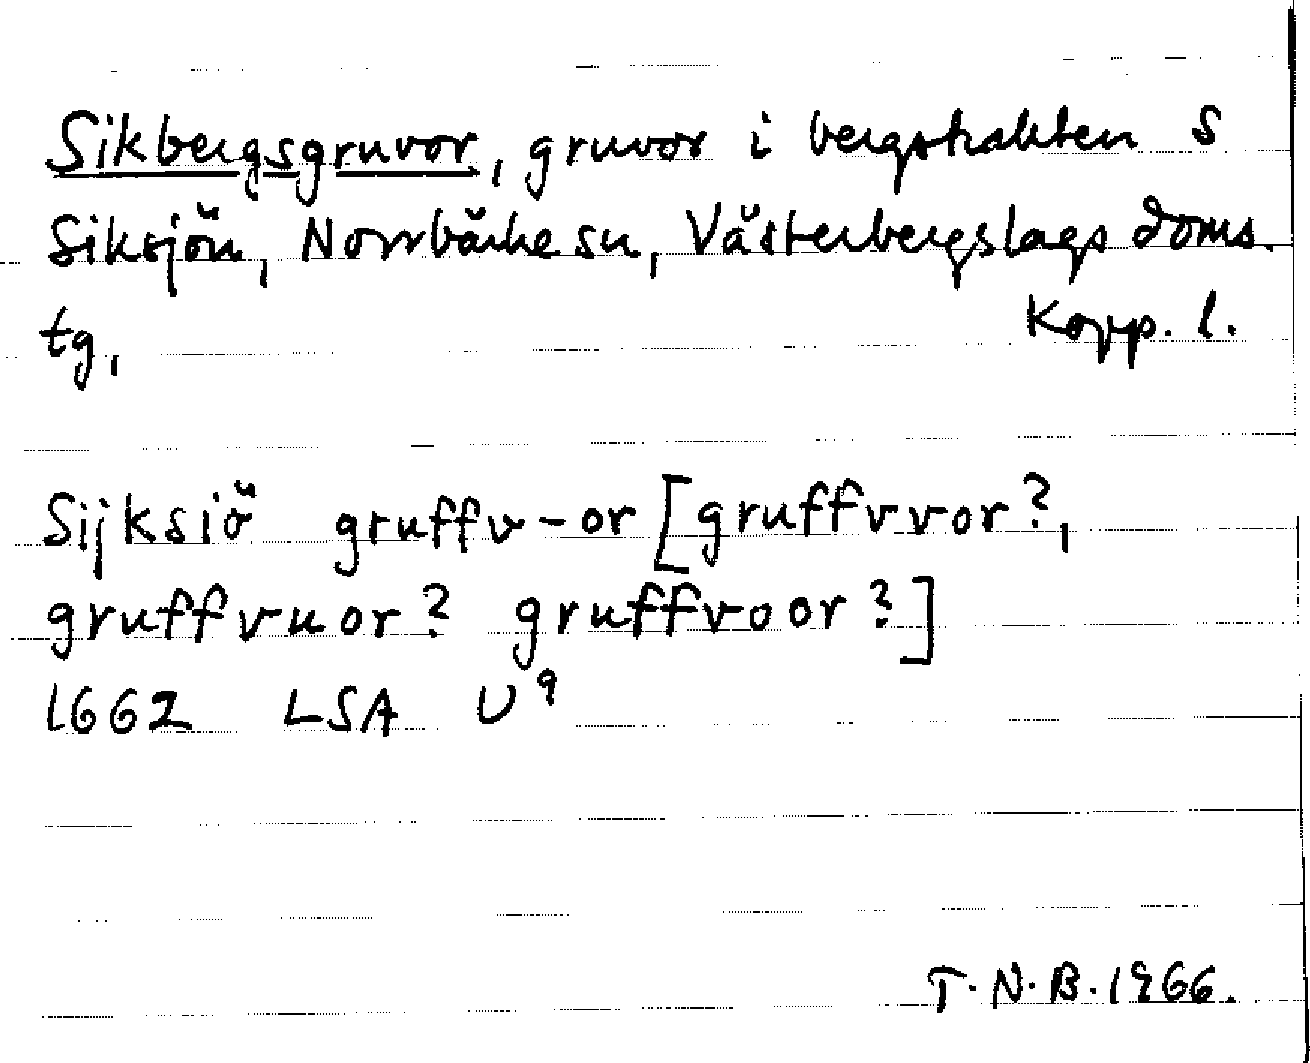 Sikbergsgruvor, gruvor i bergstrakten S
Siksjön, Norrbärke sn, Västerbergslags doms.
tg, Kopp. l.
Sijksiö gruffv-or [gruffvvor?,
gruffvuor? gruffvoor?]
1662 LSA U9
T.N.B. 1966.